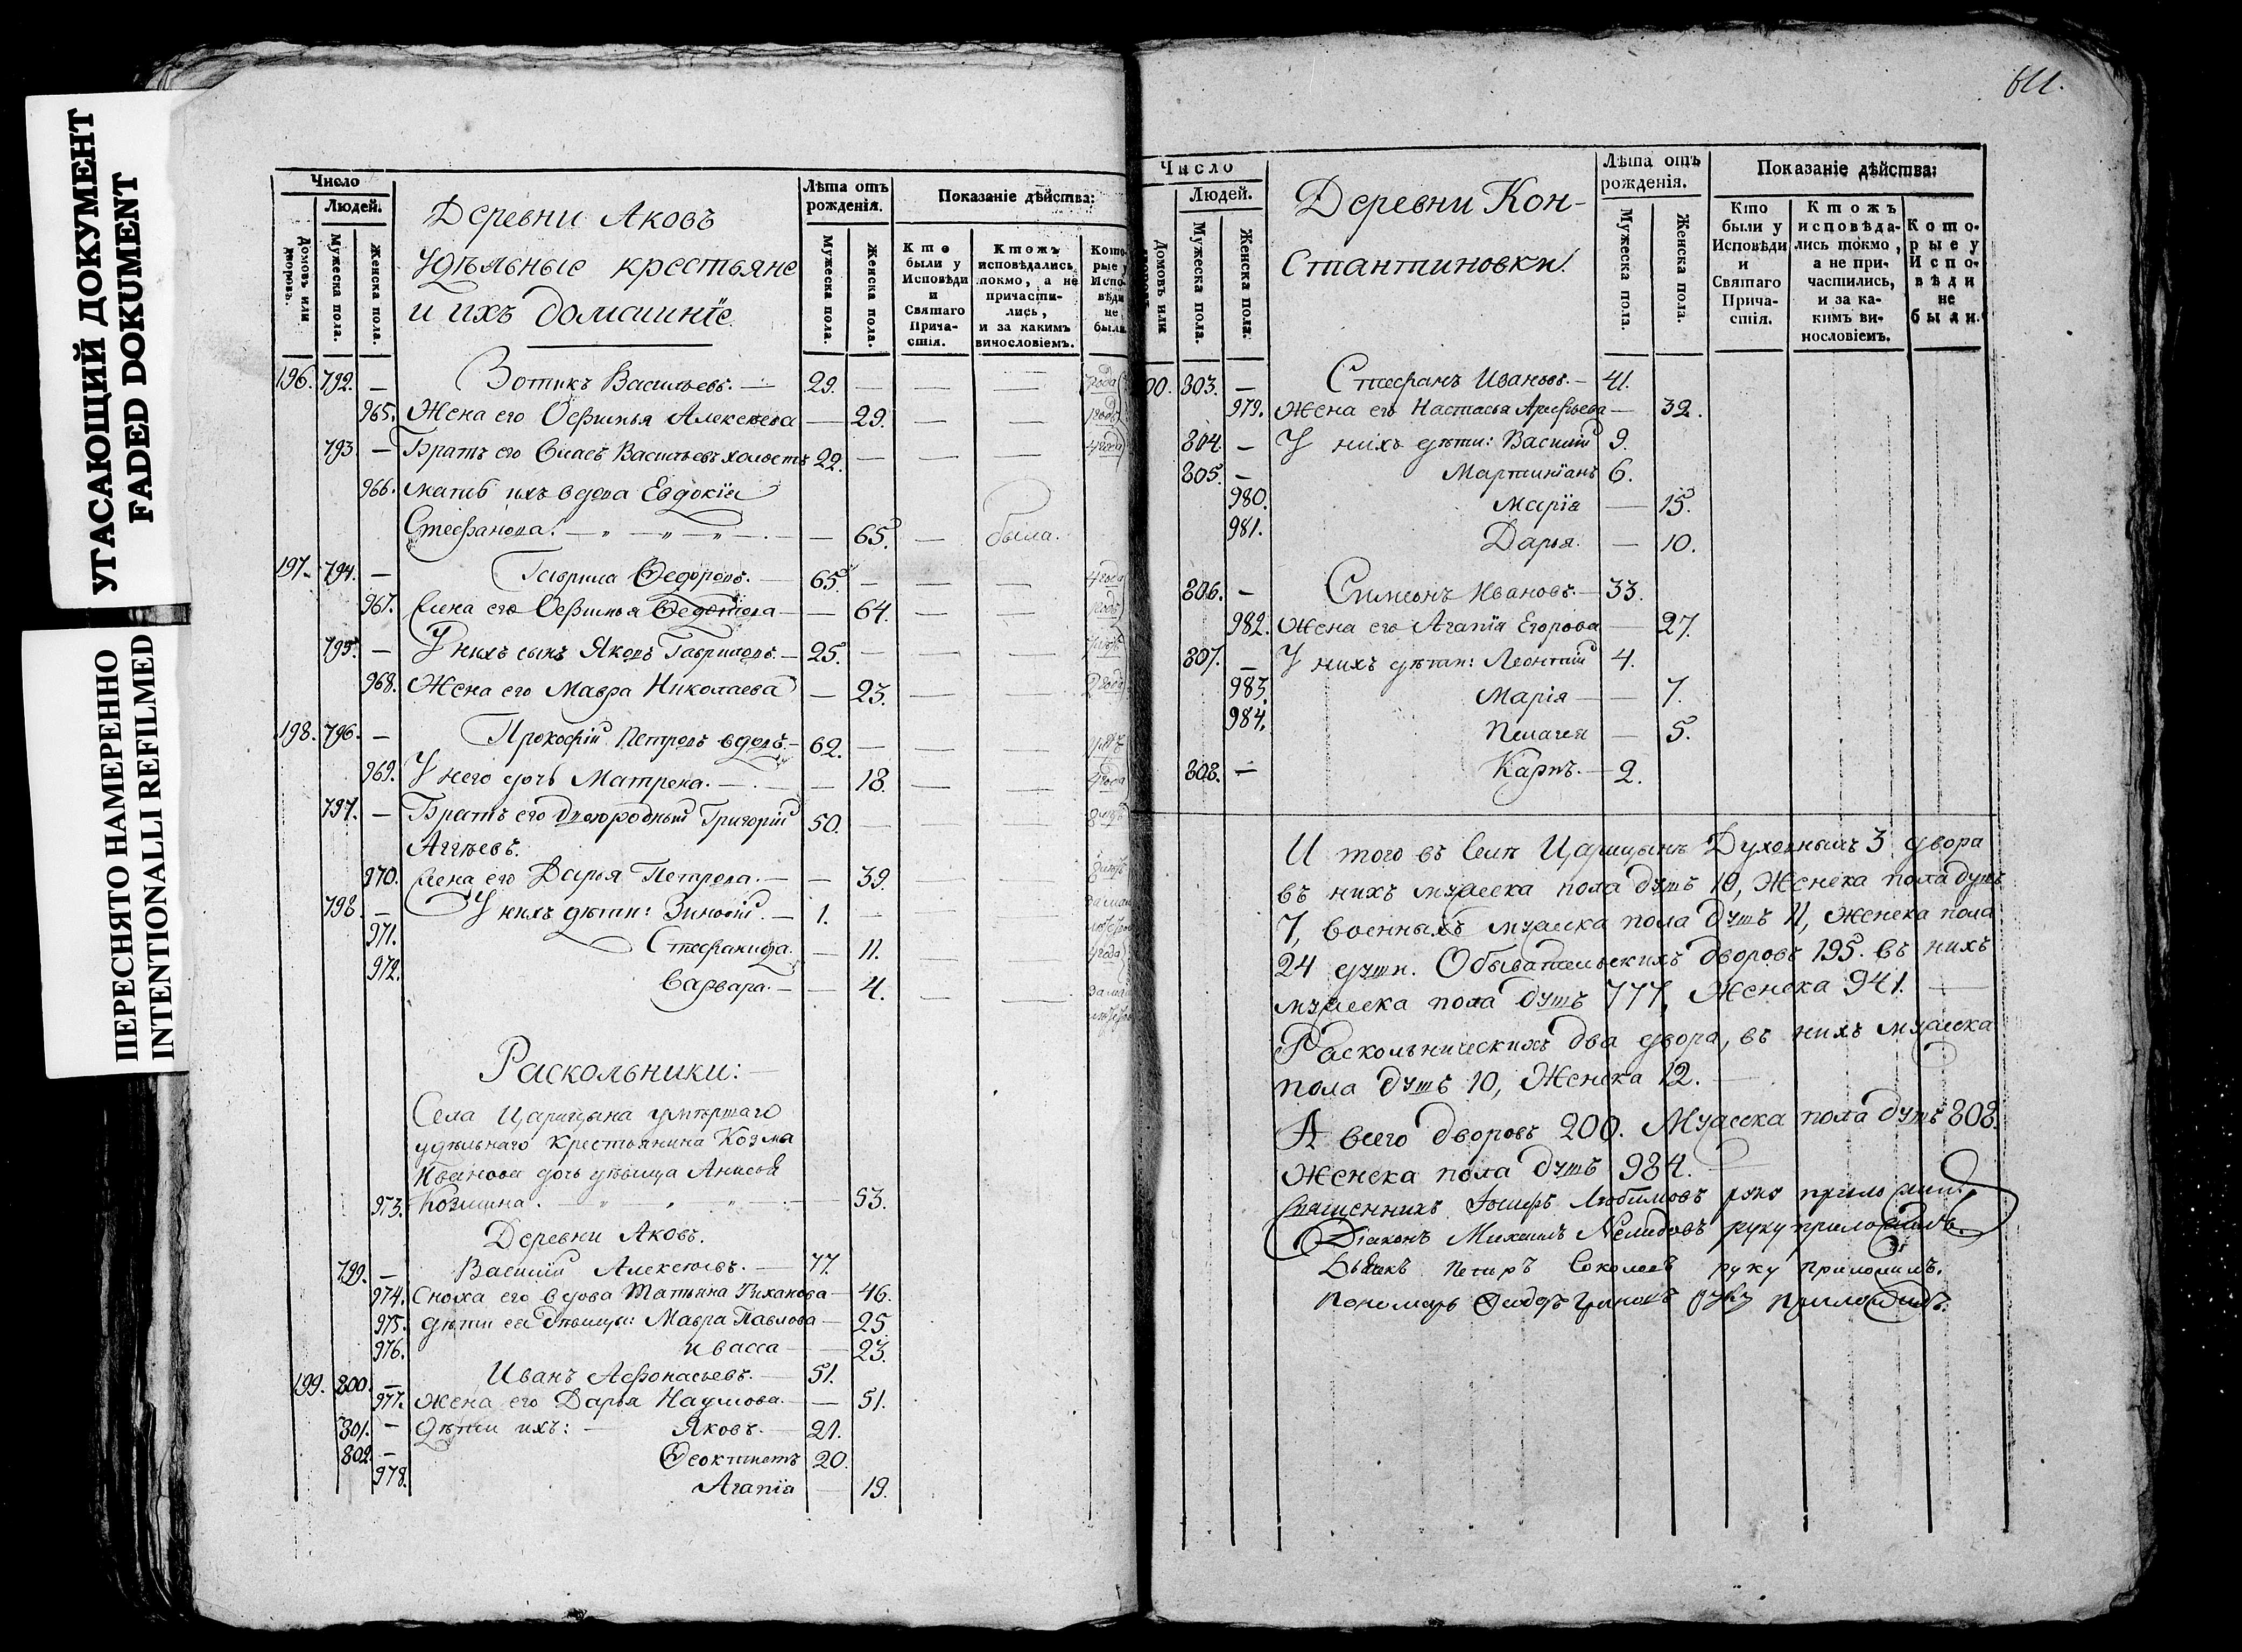 УГАСАЮЩИЙ ДОКУМЕНТ
FADED DOKUMENT
ПЕРЕСНЯТО НАМЕРЕННО
INTENTIONALLI REFILMED
Число
Людей.
Домовъ или дворовъ.
Мужеска пола.
Женска пола.
Деревни Аковъ
Удѣльные крестьяне
и ихъ домашніе.
Лѣта отъ рожденія.
Мужеска пола.
Женска пола.
Показаніе дѣйства:
Кто были у Исповѣди и Святаго Причастія.
Ктожъ исповѣдались токмо, а не причастились, и за какимъ винословіемъ.
Которые у Исповѣди не были.
196. 792. — Зотикъ Васильевъ. — 29. — — —
965. Жена его Офимья Алексѣева — 29. — —
793. — Братъ его Власъ Васильевъ холостъ 22. — — —
966. мать ихъ вдова Евдокія
Стефанова. — — 65. — была.
197. 794. — Гаврила Ѳедоровъ. — 65. — — —
967. Жена его Офимья Ѳедотова — — 64. — —
795. — У нихъ сынъ Яковъ Гавриловъ. — 25. — — —
968. Жена его Мавра Николаева — 23. — —
198. 796. — Прокофій Петровъ вдовъ. — 62. — — —
969. У него дочь Матрена. — — 18. — —
797. — Братъ его двоюродный Григорій 50. — — —
Аггѣевъ.
970. Жена его Дарья Петрова. — — 39. — —
798. — У нихъ дѣти: Зиновій. — 1. — — —
971. Стефанида. — 11. — —
972. Варвара. — — 4. — —
Раскольники: —
Села Царицына умершаго
удѣльнаго крестьянина Козмы
Иванова дочь дѣвица Анисья
973. Козмина. — — 53.
Деревни Аковъ.
799. — Василій Алексѣевъ. — 77.
974. Сноха его вдова Татьяна Тиханова — 46.
975. Дѣти ея дѣвицы: Мавра Павлова — 25
976. и васса — 23.
199. 800. — Иванъ Афонасьевъ. — 51.
977. Жена его Дарья Наумова. — — 51.
801. — Дѣти ихъ: — Яковъ. — 21.
802. — Ѳеоктистъ 20.
978. Агапія — 19.
611.
Число
Людей.
Домовъ или
Мужеска пола.
Женска пола.
Деревни Кон-
стантиновки.
Лѣта отъ рожденія.
Мужеска пола.
Женска пола.
Показаніе дѣйства:
Кто были у Исповѣди и Святаго Причастія.
Ктожъ исповѣдались токмо, а не причастились, и за какимъ винословіемъ.
Которые у Исповѣди не были.
00. 803. — Стефанъ Ивановъ. — 41.
979. Жена его Настасья Арефьева — 32.
804. — У нихъ дѣти: Василій 9.
805. — Мартиніанъ 6.
980. Марія — 15.
981. Дарья. — 10.
806. — Симеонъ Ивановъ. — 33.
982. Жена его Агапія Егорова — 27.
807. — У нихъ дѣти: Леонтій 4.
983. Марія — — 7.
984. Пелагея — 5.
808. — Карпъ. — 2.
И того въ Селѣ Царицынѣ Духовныхъ 3 двора
въ нихъ мужеска пола душъ 10, Женска пола душъ
7, военныхъ мужеска пола душъ 11, Женска пола
24 души. Обывательскихъ дворовъ 195. въ нихъ
мужеска пола душъ 777, Женска 941. —
Раскольническихъ два двора, въ нихъ мужеска
пола душъ 10, Женска 12. —
А всего дворовъ 200. Мужеска пола душъ 808.
Женска пола душъ 984. —
Священникъ Іосифъ Любимовъ руку приложилъ.
Діаконъ Михаилъ Нелидовъ руку приложилъ.
Дьячекъ Петръ Соколовъ руку приложилъ.
Пономарь руку приложилъ.